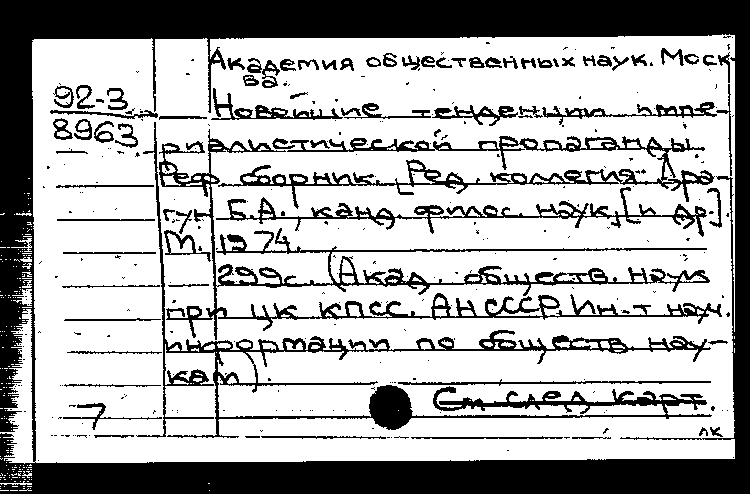 Академия общественных наук. Моск-
ва.
92-3
8963
Новейшие тенденции импе-
риалистической пропаганды.
Реф. сборник. [Ред. коллегия: Дра-
гун Б.А., канд. филос. наук, [и др.].
М., 1974.
299с. (Акад. обществ. наук
при ЦК КПСС. АН СССР. Ин-т науч.
информации по обществ. нау-
кам).
См след карт.
7
лк